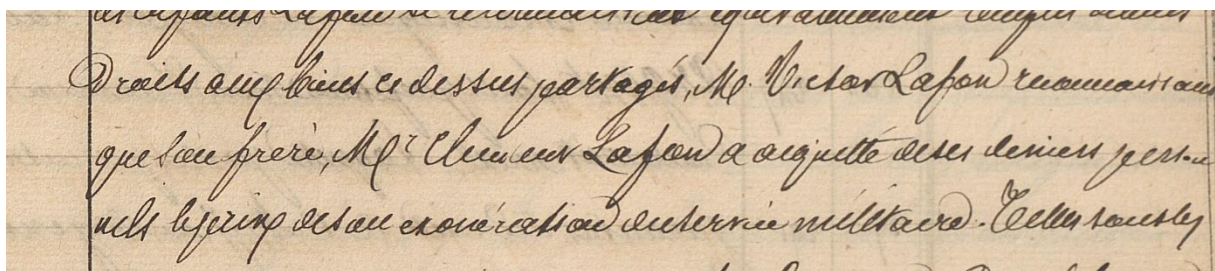 Droits aux biens ci dessus partagés, M. Victor Lafon reconnaissant
que son frère, Mr Clément Lafon a acquitté de ses deniers person
nels le prix de son exonération du service militaire. Telles sont les